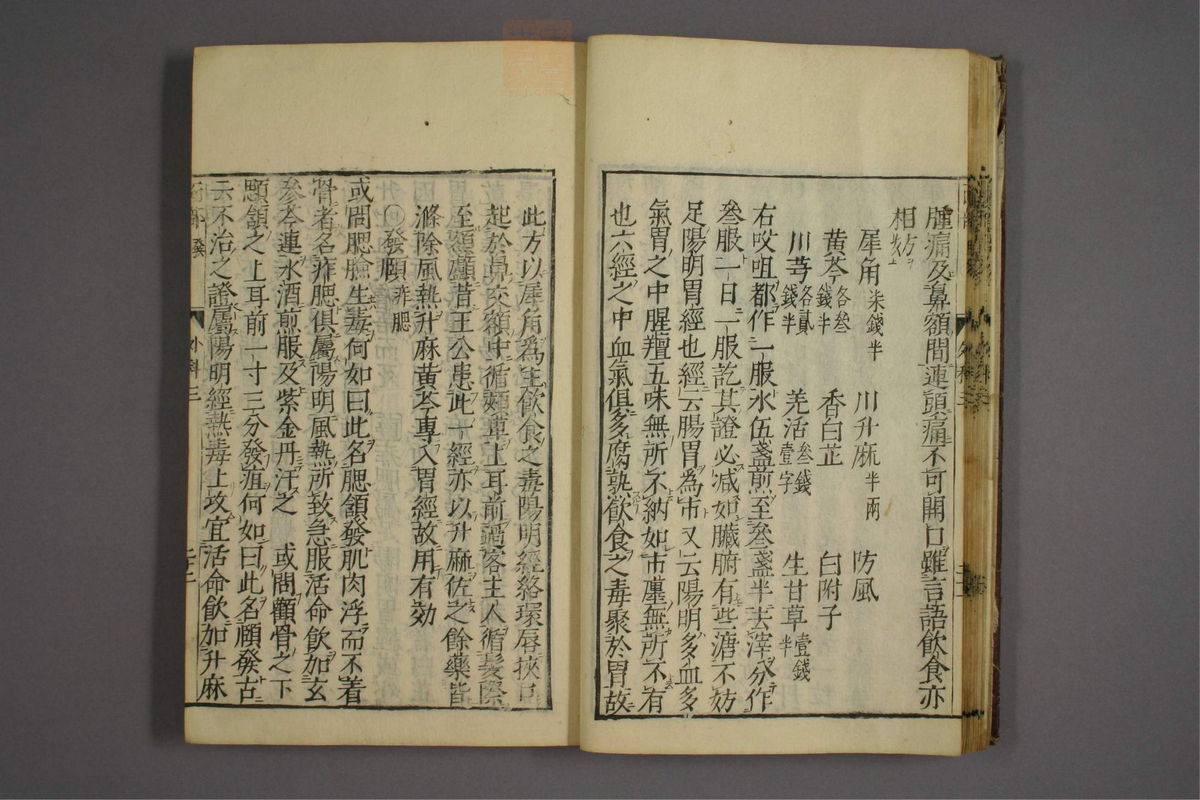 腫痛及鼻額間連頭痛不可開口雖言語飲食亦
相妨
犀角柒錢半 川升麻半兩 防風
黄芩各叁錢半 香白芷 白附子
川芎各貳錢半 羌活叁錢壹字 生甘草壹錢半
右㕮咀都作一服水伍盞煎至叁盞半去滓分作
叁服一日一服訖其證必减如臟腑有些溏不妨
足陽明胃經也經云腸胃為市又云陽明多血多
氣胃之中腥羶五味無所不納如市廛無所不有
也六經之中血氣俱多腐熟飲食之毒聚於胃故
此方以犀角為主飲食之毒陽明經絡環唇挾口
起於鼻交頞中循頰車上耳前過客主人循髮際
至額顱昔王公患此一經亦以升麻佐之餘藥皆
滌除風熱升麻黄芩專入胃經故用有効
〇發頤 痄腮
或問腮臉生毒何如曰此名腮頷發肌肉浮而不着
骨者名痄腮俱屬陽明風熱所致急服活命飲加玄
參芩連水酒煎服及紫金丹汗之 或問顴骨之下
顋頷之上耳前一寸三分發疽何如曰此名頤發古
云不治之證屬陽明經熱毒上攻宜活命飲加升麻
發 外科三 二十二